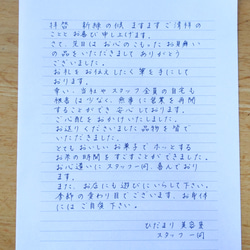 拝啓 新緑の候 ますます ご清祥の
ことと お喜び申し上げます。
さて、先日は お心のこもった お見舞い
の品をいただきまして ありがとう
ございました。
お礼をお伝えしたく 筆を手にして
おります。
幸い、当社や スタッフ全員の自宅も
被害は少なく、無事に営業を再開
することができ 安心しております。
ご心配をおかけいたしました。
お送りくださいました品物を皆で
いただきました。
とてもおいしいお菓子で ホッとする
お茶の時間をすごすことができました。
お心遣いに スタッフ一同、喜んでおり
ます。
また、お店にも遊びにいらして下さい。
季節の変わり目でございます。お身体
にはご自愛下さい。
ひだまり美容室
スタッフ一同